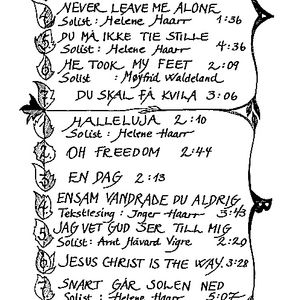 NEVER LEAVE ME ALONE
Solist: Helene Haarr 1:36
5. DU MÅ IKKE TIE STILLE
Solist: Helene Haarr 4:36
6. HE TOOK MY FEET 2:09
Solist : Møyfrid Waldeland
7. DU SKAL FÅ KVILA 3:06
1. HALLELUJA 2:10
Solist: Helene Haarr
2. OH FREEDOM 2:44
3. EN DAG 2:13
4. ENSAM VANDRADE DU ALDRIG
Tekstlesing : Inger Haarr 3:43
5. JAG VET GUD SER TILL MIG
Solist: Arnt Håvard Vigre 2:20
6. JESUS CHRIST IS THE WAY. 3:28
7. SNART GÅR SOLEN NED
Solist : Helene Haarr 5:07
B